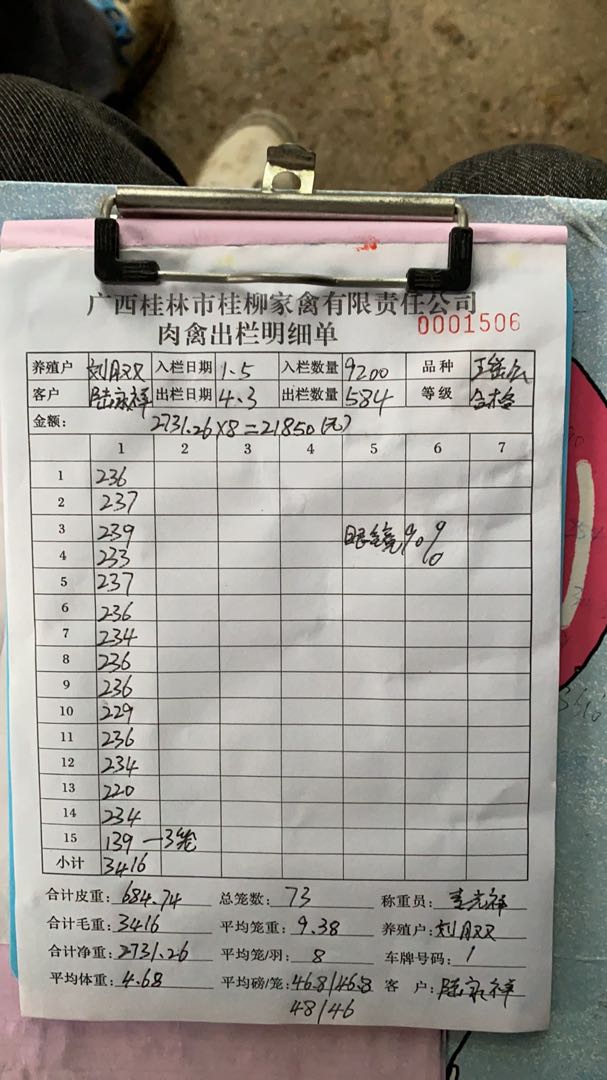 广西桂林市桂柳家禽有限责任公司
肉禽出栏明细单 0001506
养殖户 入栏日期 1.5 入栏数量 9200 品种
客户 陆家祥 出栏日期 4.3 出栏数量 584 等级 合格
金额: 2731.26×8=21850(元)
1 2 3 4 5 6 7
1 236
2 237
3 239 眼镜90%
4 233
5 237
6 236
7 234
8 236
9 236
10 229
11 236
12 234
13 220
14 234
15 139 —3笼
小计 3416
合计皮重: 684.74 总笼数: 73 称重员:
合计毛重: 3416 平均笼重: 9.38 养殖户:
合计净重: 2731.26 平均笼/羽: 8 车牌号码: 1
平均体重: 4.68 平均磅/笼: 46.8/46.8 客 户: 陆家祥
48/46